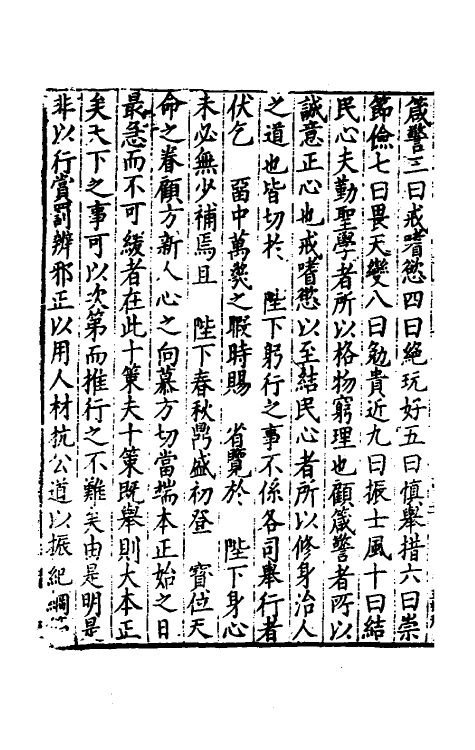 箴警三曰戒嗜慾四曰絕玩好五曰慎舉措六曰崇
節儉七曰畏天變八曰勉貴近九曰振士風十曰結
民心夫勤聖學者所以格物窮理也顧箴警者所以
誠意正心也戒嗜慾以至結民心者所以修身治人
之道也皆切於 陛下躬行之事不係各司舉行者
伏乞 留中萬幾之暇時賜 省覽於 陛下身心
未必無少補焉且 陛下春秋鼎盛初登 寳位天
命之眷顧方新人心之向慕方切當端本正始之日
最急而不可緩者在此十策夫十策既舉則大本正
矣天下之事可以次第而推行之不難矣由是明是
非以行賞罰辨邪正以用人材抗公道以振紀綱